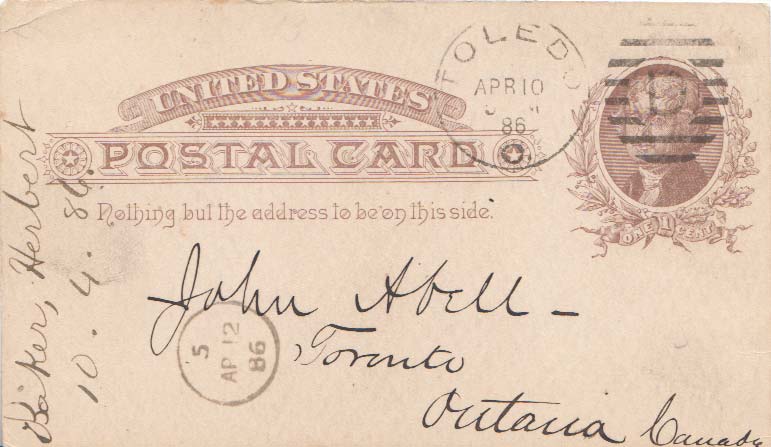 UNITED STATES
POSTAL CARD
Nothing but the address to be on this side.
TOLEDO
APR 10
86
ONE 1 CENT
John Abell -
Toronto
Ontario Canada
5
AP 12
86
Baker, Herbert
10. 4. 86.